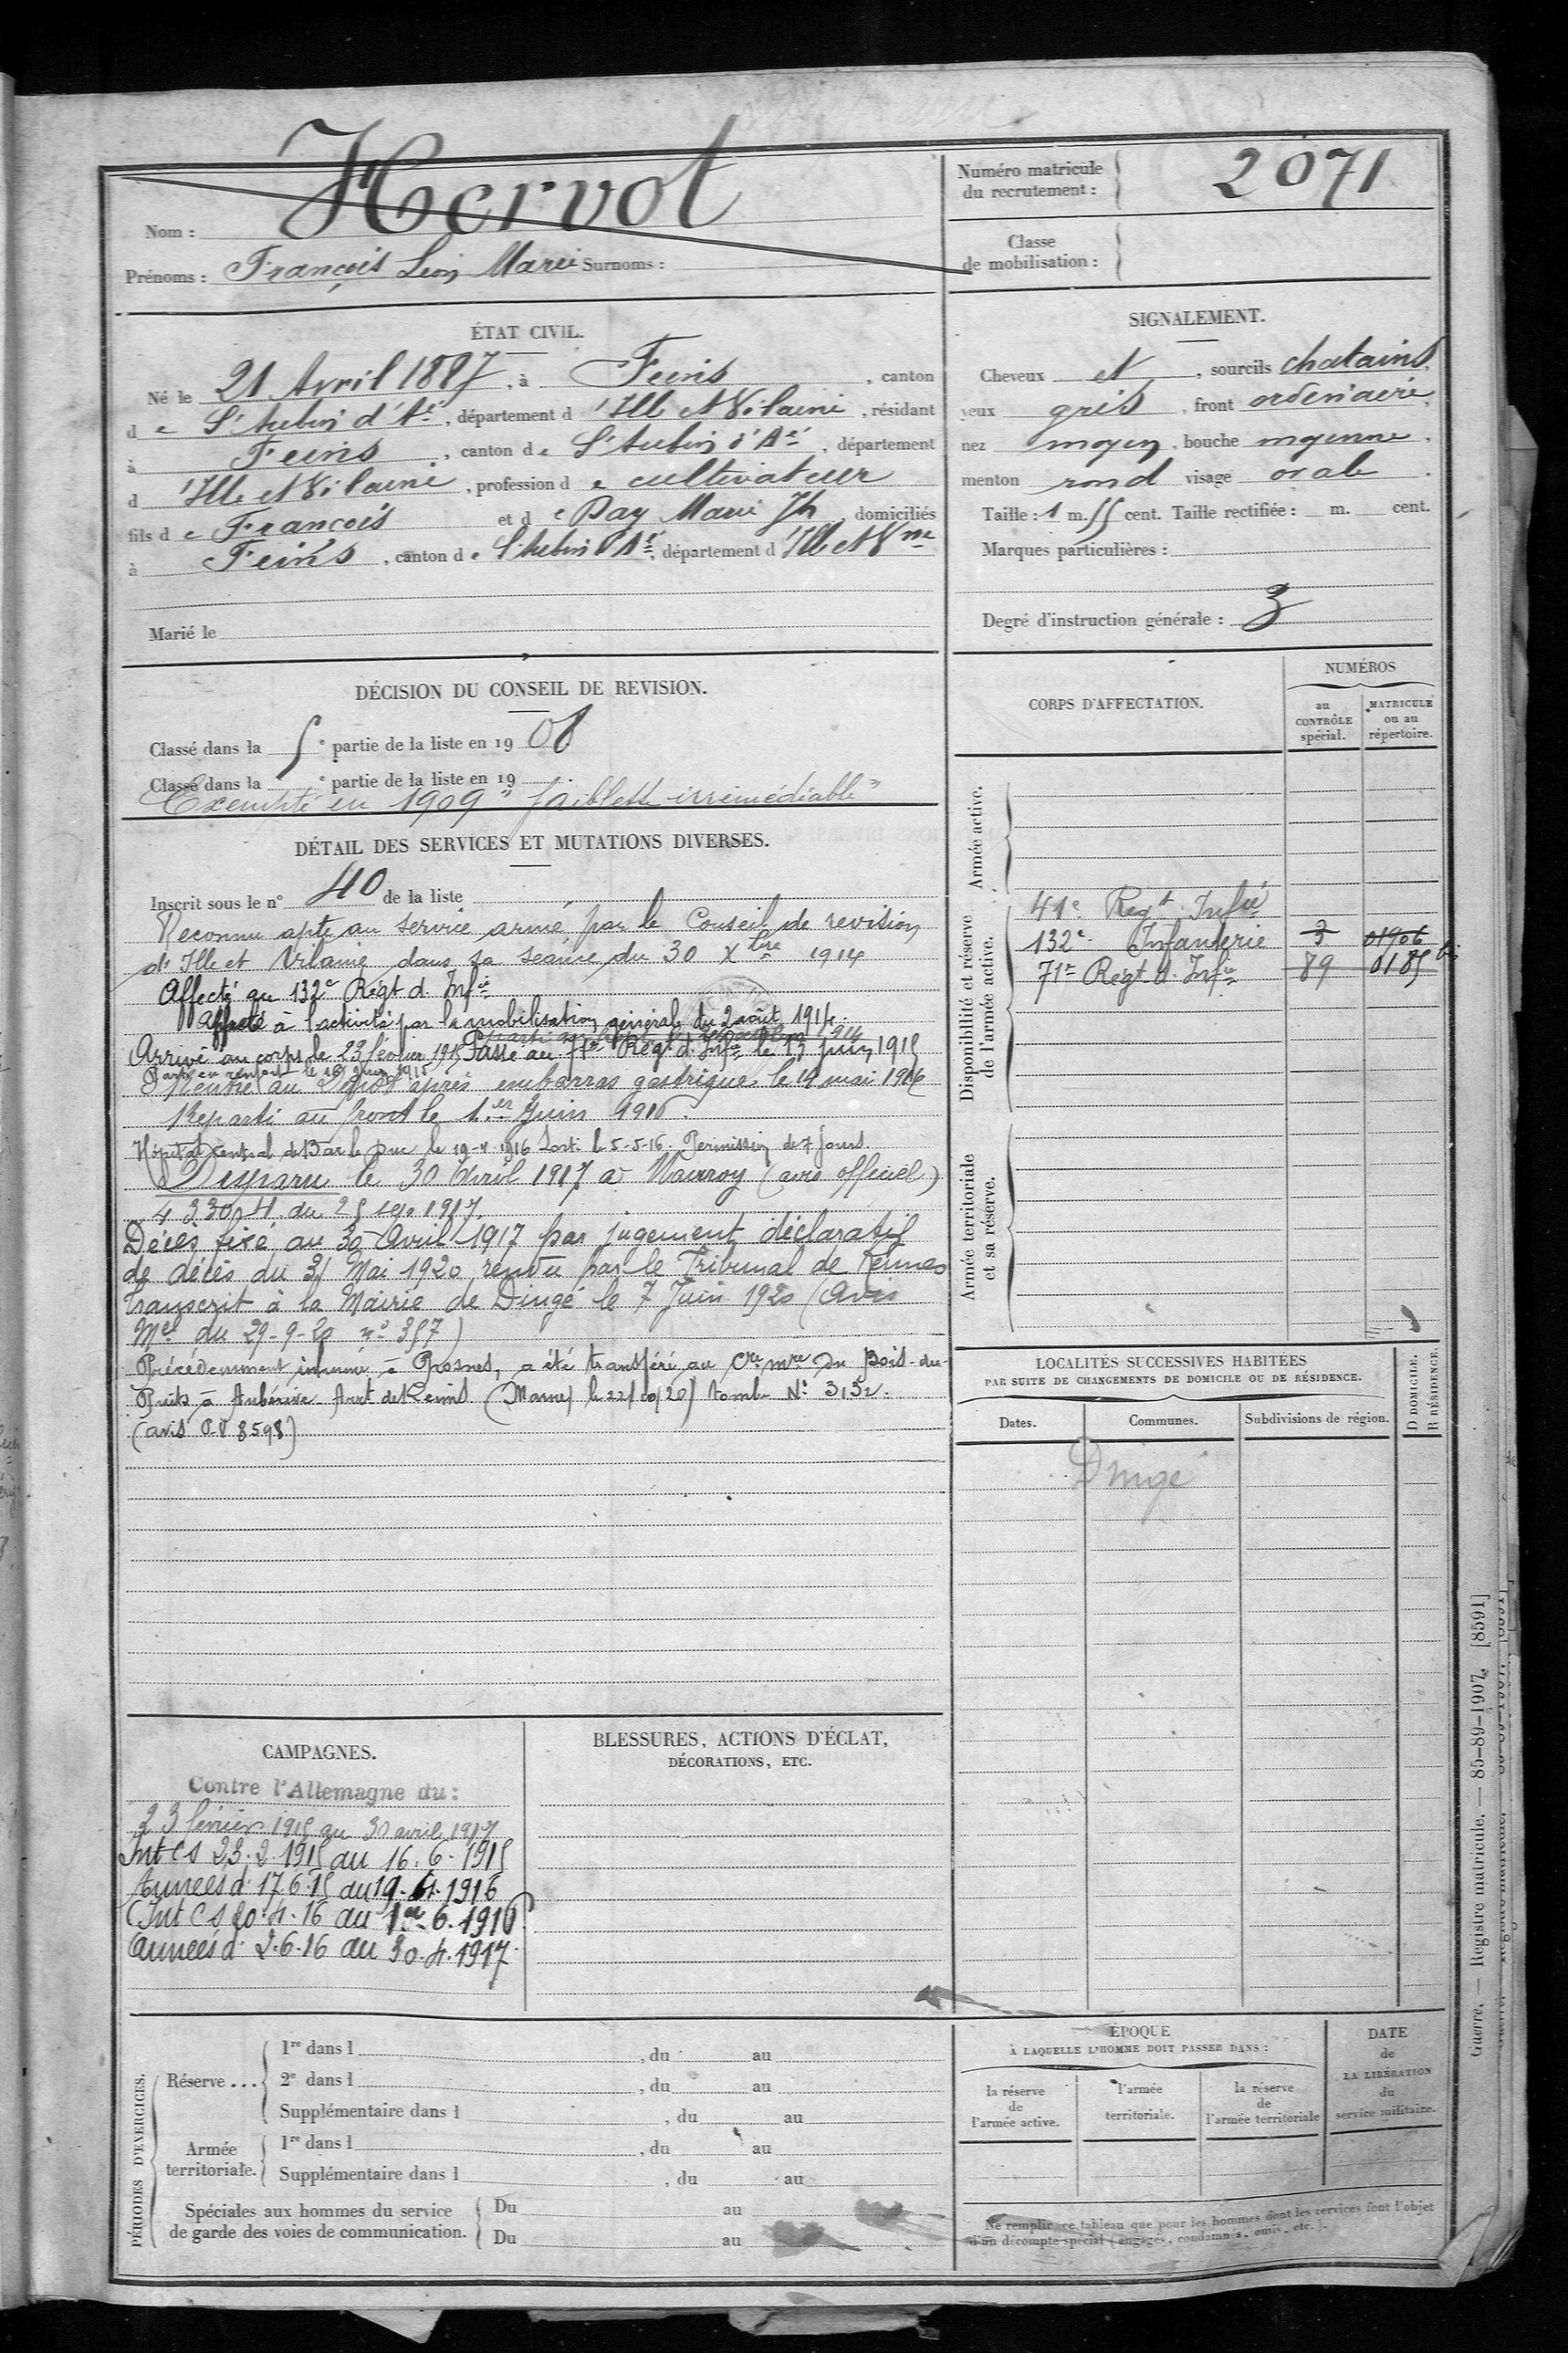 Nom : Hervot
Prénoms : François Léon Marie Surnoms :
Numéro matricule du recrutement : 2071
Classe de mobilisation :
ÉTAT CIVIL.
Né le 21 Avril 1887, à Feins, canton
de St Aubin d'Aé, département d'Ille et Vilaine, résidant
à Feins, canton de St Aubin d'Aé, département
d'Ille et Vilaine, profession de cultivateur
fils de François et de Day Marie Jh domiciliés
à Feins, canton de St Aubin d'Aé, département d'Ille et Vne
Marié le
SIGNALEMENT.
Cheveux et, sourcils chatains,
yeux gris, front ordinaire,
nez moyen, bouche moyenne,
menton rond visage ovale.
Taille : 1 m. 55 cent. Taille rectifiée : m. cent.
Marques particulières :
Degré d'instruction générale : 3
DÉCISION DU CONSEIL DE REVISION.
Classé dans la 5e partie de la liste en 1908
Classé dans la e partie de la liste en 19
Exempté en 1909 "faiblesse irrémédiable"
DÉTAIL DES SERVICES ET MUTATIONS DIVERSES.
Inscrit sous le n° 40 de la liste
Reconnu apte au service armé par le Conseil de revision
d'Ille et Vilaine dans sa séance du 30 Xbre 1914
Affecté au 132e Régt d'Infie
à l'activité par la mobilisation général du 2 août 1914.
Arrivé au corps le 23 février 1915 Passé au 71e Régt d'Infie le 13 juin 1915
Parti en renfort le 16 juin 1915
au Dépôt après embarras gastrique le 19 mai 1916
Reparti au front le 1er Juin 1916.
Hôpital central de Bar le Duc le 19-4-1916 Sorti le 5-5-16. Permission de 7 jours.
Disparu le 30 Avril 1917 à Nauroy (avis officiel)
du 25 sep. 1917.
Décès fixé au 30 Avril 1917 par jugement déclaratif
de décès du 31 Mai 1920 rendu par le Tribunal de Rennes
transcrit à la Mairie de Dingé le 7 Juin 1920 (Avis
Mel du 29-9-20 n° 357)
Précédemment inhumé à Prosnes, a été transféré au Cre mre du Bois-du-
Puits à Aubérive Arrt de Reims (Marne) le 22/10/20) tombe N° 3132.
(avis P.V 8598)
CORPS D'AFFECTATION.
NUMÉROS
au CONTRÔLE spécial.
MATRICULE ou au répertoire.
Armée active.
Disponibilité et réserve de l'armée active.
41e Regt Infie
132e Infanterie 3 01906
71e Regt d'Infie 89 0185 bis
Armée territoriale et sa réserve.
LOCALITÉS SUCCESSIVES HABITÉES
PAR SUITE DE CHANGEMENTS DE DOMICILE OU DE RÉSIDENCE.
Dates. Communes. Subdivisions de région. D DOMICILE. R RÉSIDENCE.
Dingé
CAMPAGNES.
Contre l'Allemagne du :
23 février 1915 au 30 avril 1917
Int Cs 23.2.1915 au 16.6.1915
Armées d. 17.6.15 au 19.4.1916
Int Cs 20.4.16 au 1er.6.1916
Armées d. 2.6.16 au 30.4.1917
BLESSURES, ACTIONS D'ÉCLAT,
DÉCORATIONS, ETC.
PÉRIODES D'EXERCICES.
Réserve ...
1re dans l , du au
2e dans l , du au
Supplémentaire dans l , du au
Armée territoriale.
1re dans l , du au
Supplémentaire dans l , du au
Spéciales aux hommes du service
de garde des voies de communication.
Du au
Du au
ÉPOQUE
À LAQUELLE L'HOMME DOIT PASSER DANS :
la réserve de l'armée active.
l'armée territoriale.
la réserve de l'armée territoriale
DATE de LA LIBÉRATION du service militaire.
Ne remplir ce tableau que pour les hommes dont les services font l'objet
d'un décompte spécial (engagés, condamnés, omis, etc.).
Guerre. — Registre matricule. — 85-89-1907. [8591]